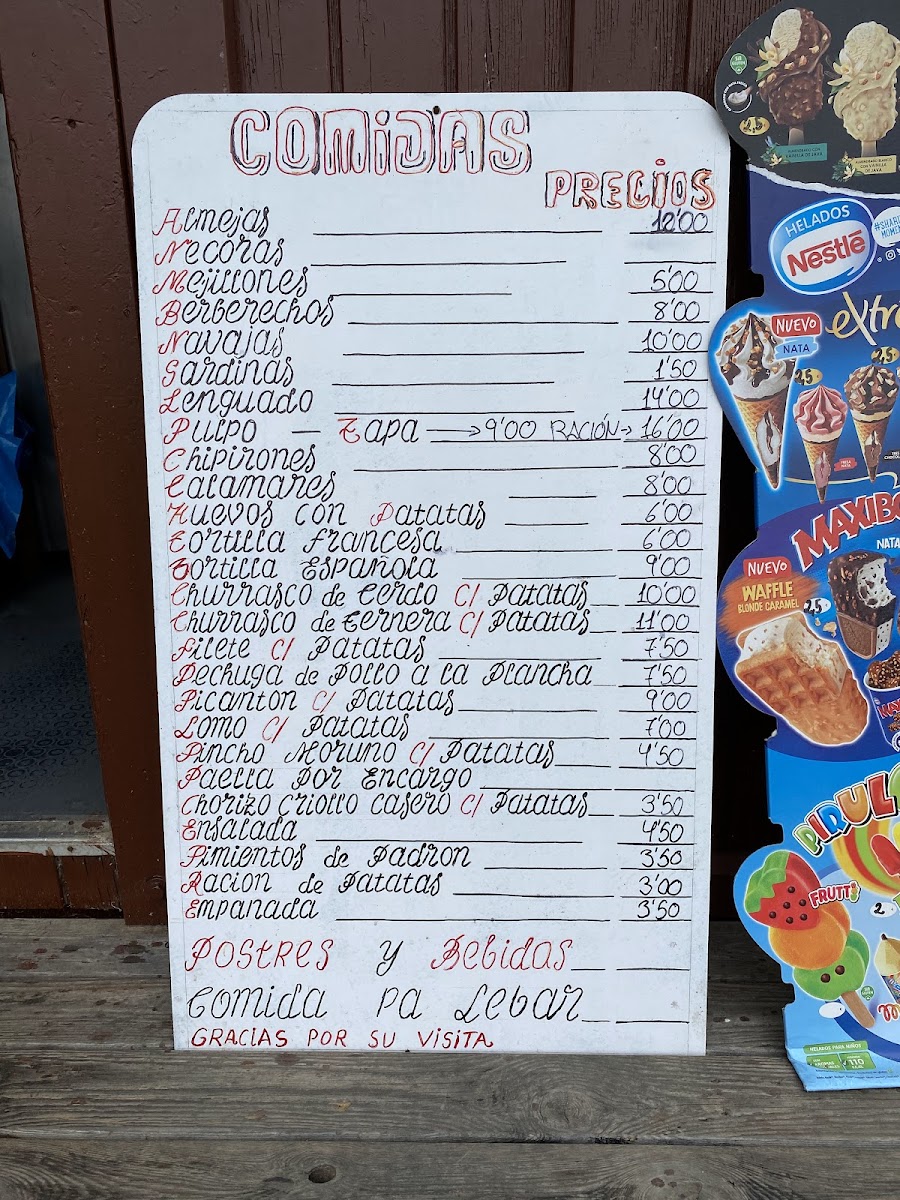 COMIDAS
PRECIOS
Almejas 12'00
Necoras
Mejillones 5'00
Berberechos 8'00
Navajas 10'00
Sardinas 1'50
Lenguado 14'00
Pulpo — Tapa → 9'00 RACIÓN → 16'00
Chipirones 8'00
Calamares 8'00
Huevos con Patatas 6'00
Tortilla francesa 6'00
Tortilla Española 9'00
Churrasco de Cerdo C/ Patatas 10'00
Churrasco de Ternera C/ Patatas 11'00
Filete C/ Patatas 7'50
Pechuga de Pollo a la Plancha 7'50
Picanton C/ Patatas 9'00
Lomo C/ Patatas 7'00
Pincho Moruno C/ Patatas 4'50
Paella Por Encargo
Chorizo Criollo Casero C/ Patatas 3'50
Ensalada 4'50
Pimientos de Padron 3'50
Racion de Patatas 3'00
Empanada 3'50
Postres y Bebidas
Comida Pa Lebar
GRACIAS POR SU VISITA
2,5
HELADOS
Nestlé
NUEVO
NATA
extr
2,5
2,5
MAXIBO
NATA
NUEVO
WAFFLE
BLONDE CARAMEL
2,5
PIRUL
FRUTTI
2
HELADOS PARA NIÑOS
110